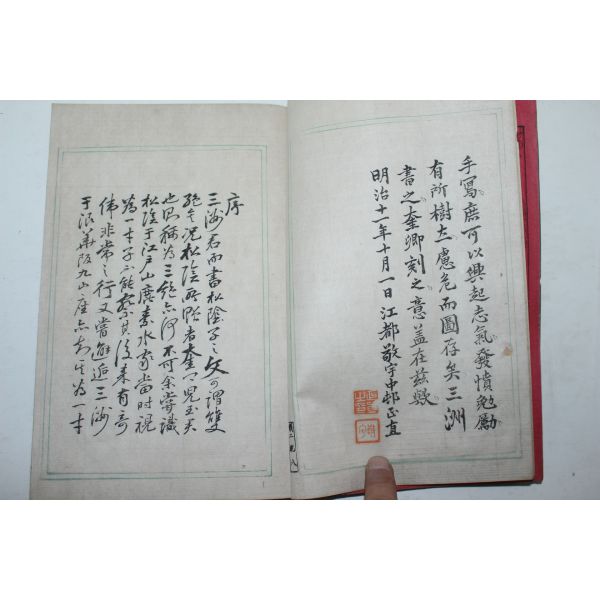 手寫庶可以興起志氣發憤勉勵
有所樹立慮危而圖存矣三洲
書之奎卿刻之意蓋在茲歟
明治十一年十月一日江都敬宇中邨正直
序
三洲君而書松陰子之文可謂雙
絕矣況松陰所貽者奎卿兄丈夫
也則稱為三絕亦何不可余嘗識
松陰于江戶山鹿素水家當時視
為一本子不能察其後來有奇
偉非常之行又嘗邂逅三洲
于浪華阪九山座亦知其為一本